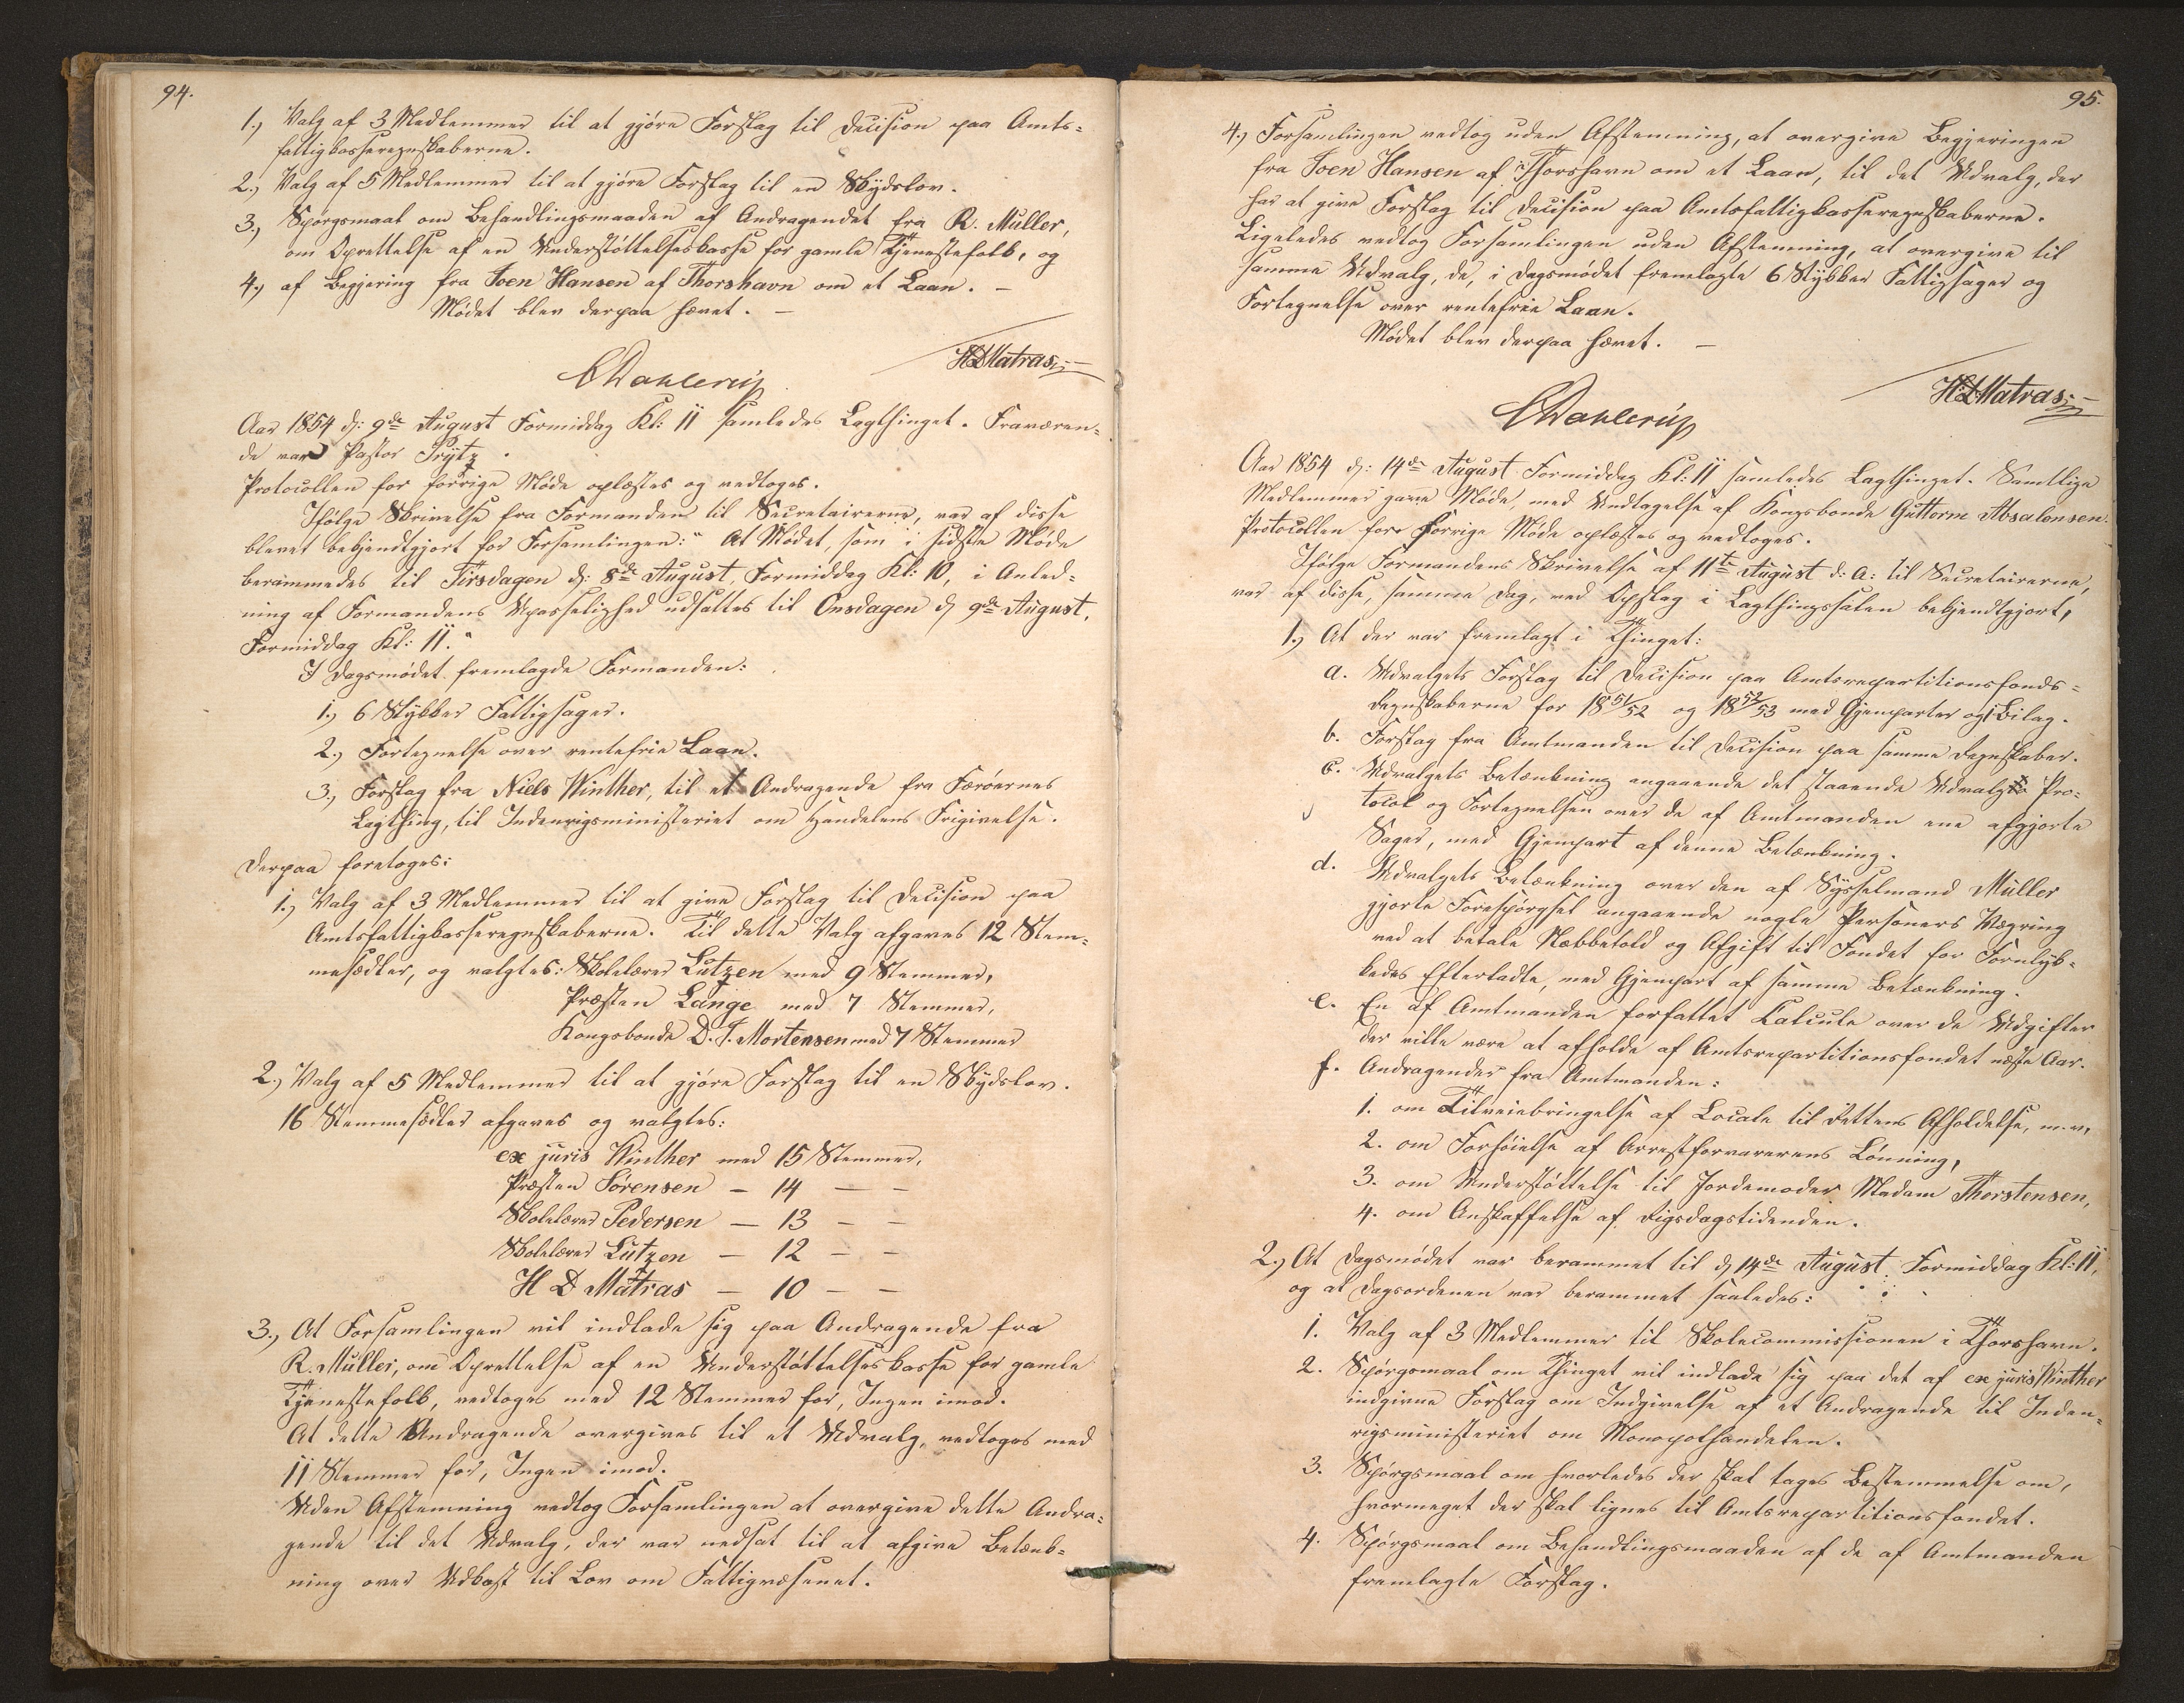 94.
1.) Valg af 3 Medlemmer til at gjöre Forslag til Decision paa Amts-
fattigkasseregnskaberne.
2.) Valg af 5 Medlemmer til at gjöre Forslag til en Skydslov.
3.) Spörgsmaal om Behandlingsmaaden af Andragendet fra R. Müller,
om Oprettelse af en Understöttelseskasse for gamle Tjenestefolk, og
4.) af Begjering fra Joen Hansen af Thorshavn om et Laan. —
Mödet blev derpaa hævet. —
CDahlerup
HDMatras
Aar 1854 d: 9de August Formiddag Kl: 11 samledes Lagthinget. Fraværen-
de var Pastor Prytz.
Protocollen for forrige Möde oplæstes og vedtoges.
Ifölge Skrivelse fra Formanden til Secretairerne, var af disse
blevet bekjendtgjort for Forsamlingen: "At Mödet, som i sidste Möde
berammedes til Tirsdagen d: 8de August, Formiddag Kl: 10, i Anled-
ning af Formandens Upasselighed udsattes til Onsdagen d 9de August,
Formiddag Kl: 11."
I Dagsmödet fremlagde Formanden:
1.) 6 Stykker Fattigsager.
2.) Fortegnelse over rentefrie Laan.
3.) Forslag fra Niels Winther, til et Andragende fra Færöernes
Lagthing, til Indenrigsministeriet om Handelens Frigivelse.
Derpaa foretoges:
1.) Valg af 3 Medlemmer til at give Forslag til Decision paa
Amtsfattigkasseregnskaberne. Til dette Valg afgaves 12 Stem-
mesedler, og valgtes: Skolelærer Lützen med 9 Stemmer,
Præsten Lange med 7 Stemmer,
Kongsbonde D. J. Mortensen med 7 Stemmer
2.) Valg af 5 Medlemmer til at gjöre Forslag til en Skydslov.
16 Stemmesedler afgaves og valgtes:
ex juris Winther med 15 Stemmer,
Præsten Sörensen — 14 — —
Skolelærer Pedersen — 13 — —
Skolelærer Lützen — 12 — —
H D Matras — 10 — —
3.) At Forsamlingen vil indlade sig paa Andragende fra
R. Müller, om Oprettelse af en Understöttelseskasse for gamle
Tjenestefolk, vedtoges med 12 Stemmer for, Ingen imod.
At dette Andragende overgives til et Udvalg, vedtoges med
11 Stemmer for, Ingen imod.
Uden Afstemning vedtog Forsamlingen at overgive dette Andra-
gende til det Udvalg, der var nedsat til at afgive Betænk-
ning over Udkast til Lov om Fattigvæsenet.
95.
4.) Forsamlingen vedtog uden Afstemning, at overgive Begjeringen
fra Joen Hansen af Thorshavn om et Laan, til det Udvalg, der
har at give Forslag til Decision paa Amtsfattigkasseregnskaberne.
Ligeledes vedtog Forsamlingen uden Afstemning, at overgive til
samme Udvalg, de, i Dagsmödet fremlagte 6 Stykker Fattigsager og
Fortegnelse over rentefrie Laan.
Mödet blev derpaa hævet. —
CDahlerup
H:DMatras
Aar 1854 d: 14de August Formiddag Kl: 11 samledes Lagthinget. Samtlige
Medlemmer gave Möde, med Undtagelse af Kongsbonde Guttorm Absalonsen.
Protocollen for forrige Möde oplæstes og vedtoges.
Ifölge Formandens Skrivelse af 11te August d: A: til Secretairerne,
var af disse, samme Dag, ved Opslag i Lagthingssalen bekjendtgjort,
1.) At der var fremlagt i Thinget:
a. Udvalgets Forslag til Decision paa Amtsrepartitionsfonds-
Regnskaberne for 1851/52 og 1852/53 med Gjenparter og Bilag.
b. Forslag fra Amtmanden til Decision paa samme Regnskaber.
c. Udvalgets Betænkning angaaende det staaende Udvalgs Pro-
tocol og Fortegnelsen over de af Amtmanden ene afgjorte
Sager, med Gjenpart af denne Betænkning.
d. Udvalgets Betænkning over den af Sysselmand Müller
gjorte Forespörgsel angaaende nogle Personers Vægring
ved at betale Næbbetold og Afgift til Fondet for Forulyk-
kedes Efterladte, med Gjenpart af samme Betænkning.
e. En af Amtmanden forfattet Calcule over de Udgifter
der ville være at afholde af Amtsrepartitionsfondet næste Aar.
f. Andragender fra Amtmanden:
1. om Tilveiebringelse af Locale til Rettens Afholdelse, m.v.,
2. om Forhöielse af Arrestforvarerens Lönning,
3. om Understöttelse til Jordemoder Madam Thorstensen,
4. om Anskaffelse af Rigsdagstidenden.
2.) At Dagsmödet var berammet til d 14de August Formiddag Kl: 11,
og at Dagsordenen var berammet saaledes:
1. Valg af 3 Medlemmer til Skolecommissionen i Thorshavn.
2. Spörgsmaal om Thinget vil indlade sig paa det af ex juris Winther
indgivne Forslag om Indgivelse af et Andragende til Inden-
rigsministeriet om Monopolhandelen.
3. Spörgsmaal om hvorledes der skal tages Bestemmelse om,
hvormeget der skal lignes til Amtsrepartitionsfondet.
4. Spörgsmaal om Behandlingsmaaden af de af Amtmanden
fremlagte Forslag.